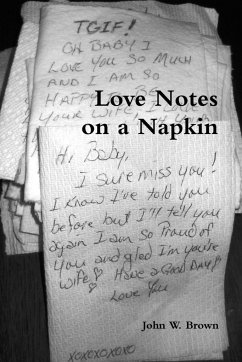 TGIF!
OH BABY I
LOVE YOU SO MUCH
AND I AM SO
HAPPY TO BE
YOUR WIFE, I
Love Notes
on a Napkin
Hi Baby,
I sure miss you!
I know I've told you
before but I'll tell you
again I am so proud of
you and glad I'm you're
wife Have a Good Day!
Love You
John W. Brown
XOXOXOXOXO